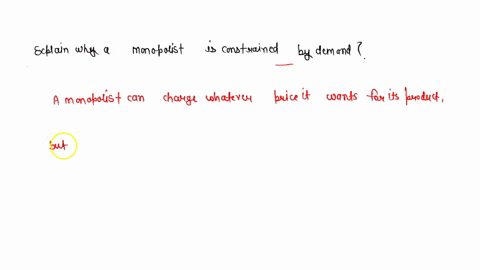 Explain why a monopolist is constrained by demand?.
A monopolist can charge whatever price it wants for its product,
but